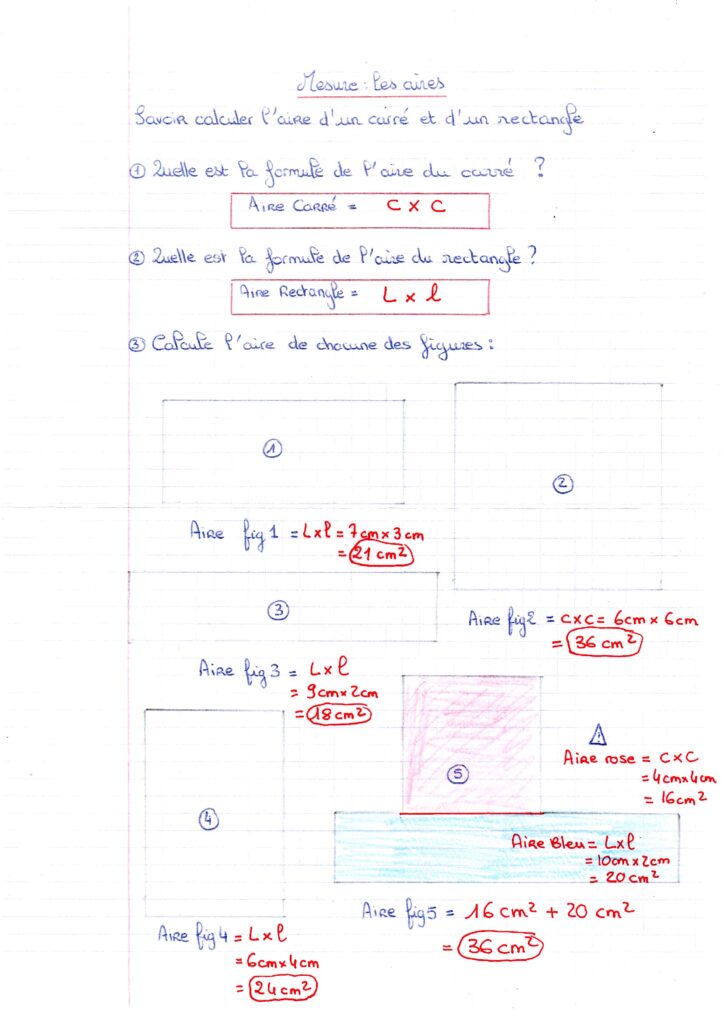 Mesure : les aires
Savoir calculer l'aire d'un carré et d'un rectangle
① Quelle est la formule de l'aire du carré ?
Aire Carré = C x C
② Quelle est la formule de l'aire du rectangle ?
Aire Rectangle = L x l
③ Calcule l'aire de chacune des figures :
①
②
Aire fig 1 = L x l = 7cm x 3 cm
= 21 cm²
③
Aire fig 2 = C x C = 6cm x 6cm
= 36 cm²
Aire fig 3 = L x l
= 9cm x 2cm
= 18 cm²
④
⑤
Aire rose = C x C
= 4cm x 4cm
= 16 cm²
Aire Bleu = L x l
= 10cm x 2cm
= 20 cm²
Aire fig 5 = 16 cm² + 20 cm²
= 36 cm²
Aire fig 4 = L x l
= 6cm x 4cm
= 24 cm²